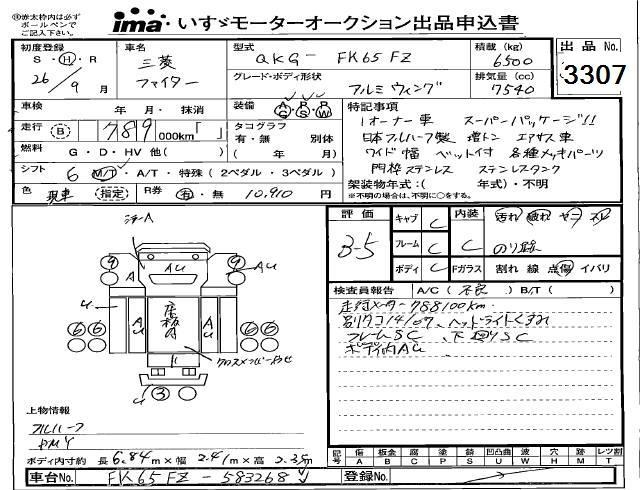 ㊟赤太枠内は必ず
ボールペンで
ご記入下さい。
ima いすゞモーターオークション出品申込書
初度登録 S・H・R 26年 9月
車名 三菱 ファイター
型式 QKG- FK65FZ
グレード・ボディ形状 アルミウィング
積載(kg) 6500
排気量(cc) 7540
出品No. 3307
車検 年 月・抹消
装備 AG PS RSW
走行 B 789 000km「 」
タコグラフ 有・無 別体
燃料 G・D・HV 他( )
( 年 月)
シフト 6 M/T・A/T・特殊(2ペダル・3ペダル)
色 現車 (指定) R券 有・無 10,910 円
特記事項
1オーナー車 スーパーパッケージ!!
日本フルハーフ製 増トン エアサス車
ワイド幅 ベット付 各種メッキパーツ
門枠ステンレス ステンレスタンク
架装物年式:( 年式)・不明
※不明の場合は、不明に○をする。
評価 3-5
キャブ C
フレーム C
ボディ C
内装 C
汚れ 破れ ヤニ スレ
のり跡
Fガラス 割れ 線 点傷 イバリ
検査員報告 A/C( 不良 ) B/T( )
走行メーター788100km.
別タコ14/09、ヘッドライトくすみ
フレームSC、下廻りSC
ボディ内AU
シャーA
9 A AU 9 AU
u AU 床板A AU
6 6 6 6
クロスメンバー
u 3
上物情報
フルハーフ
PMY
ボディ内寸約 長6.84m×幅2.41m×高2.35m
記号 傷A 板金B 腐C 塗P 錆S 凹凸曲U 波W 穴H 目M レツ割T
車台No. FK65FZ-583268
登録No.